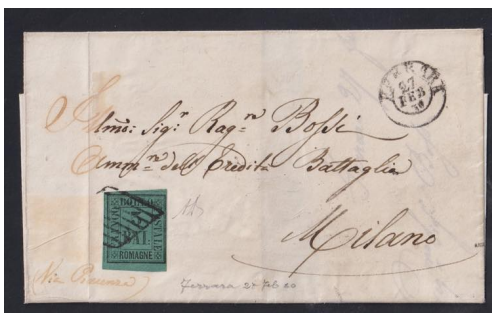 FERRARA
27
FEB
60
Illmo: Sigr: Ragn Bossi
Ammne dell'Eredità Battaglia
Milano
BOLLO
POSTALE
BAI.
ROMAGNE
(Via Piacenza)
Ferrara 27 Feb 60